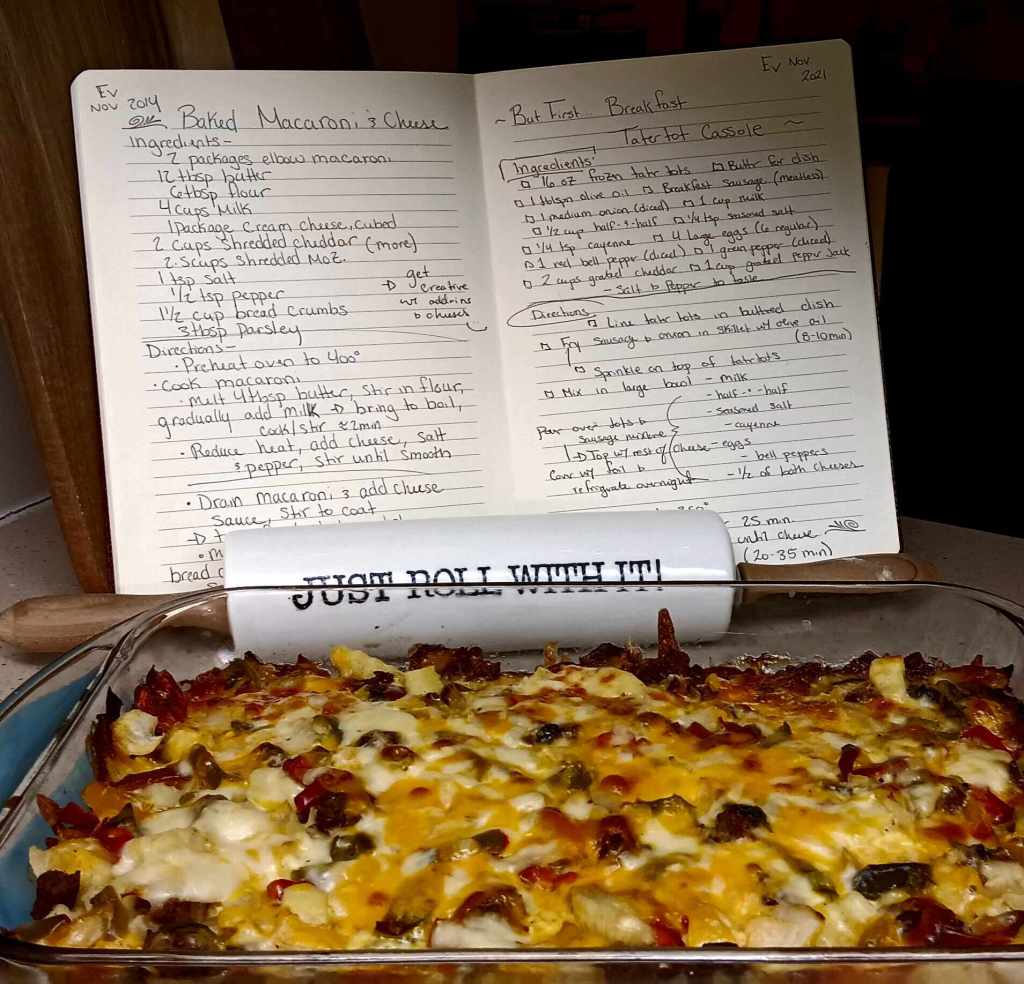 Ev
Nov 2014
Baked Macaroni & Cheese
Ingredients -
2 packages elbow macaroni
12 tbsp butter
6 tbsp flour
4 cups Milk
1 Package Cream cheese, cubed
2 cups shredded cheddar (more)
2.5 cups shredded Moz.
1 tsp salt
1/2 tsp pepper
1 1/2 cup bread crumbs
3 tbsp Parsley
→ get
creative
w/ add-ins
& cheeses
Directions -
· Preheat oven to 400°
· Cook macaroni
· melt 4 tbsp butter, stir in flour,
gradually add milk → bring to boil,
cook/stir ≈ 2 min
· Reduce heat, add cheese, salt
& pepper, stir until smooth
· Drain macaroni & add cheese
sauce, stir to coat
bread
Ev Nov
2021
~ But First... Breakfast
Tatertot Cassole ~
Ingredients:
□ 16 oz frozen tatr tots □ Butter for dish
□ 1 tblspn olive oil □ Breakfast sausage (meatless)
□ 1 medium onion (diced) □ 1 cup milk
□ 1/2 cup half-&-half □ 1/4 tsp seasoned salt
□ 1/4 tsp cayenne □ 4 Large eggs (6 regular)
□ 1 red bell pepper (diced) □ 1 green pepper (diced)
□ 2 cups grated cheddar □ 1 cup grated pepper Jack
- Salt & Pepper to taste
Directions
□ Line tatr tots in buttered dish
□ Fry sausage & onion in skillet w/ olive oil
(8-10 min)
□ Sprinkle on top of tatr tots
□ Mix in large bowl - milk
- half-&-half
- seasoned salt
- cayenne
- eggs
- bell peppers
- 1/2 of both cheeses
Pour over tots &
sausage mixture
→ Top w/ rest of cheese
Cover w/ foil &
refrigerate overnight
350°
25 min.
until cheese
(20-35 min)
JUST ROLL WITH IT!